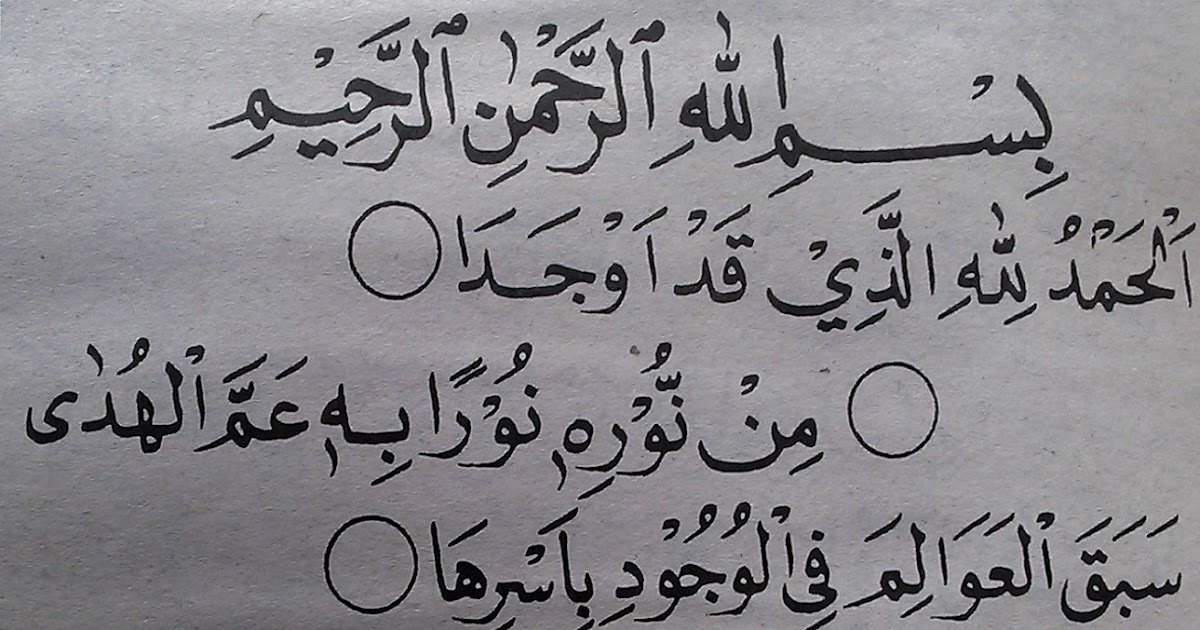 بِسْمِ اللهِ ٱلرَّحْمٰنِ ٱلرَّحِيْمِ
اَلْحَمْدُ لِلّٰهِ الَّذِيْ قَدْ اَوْجَدَا ○
○ مِنْ نُّوْرِهٖ نُوْرًا بِهٖ عَمَّ ٱلْهُدٰى
سَبَقَ ٱلْعَوَالِمَ فِي ٱلْوُجُوْدِ بِاَسْرِهَا ○